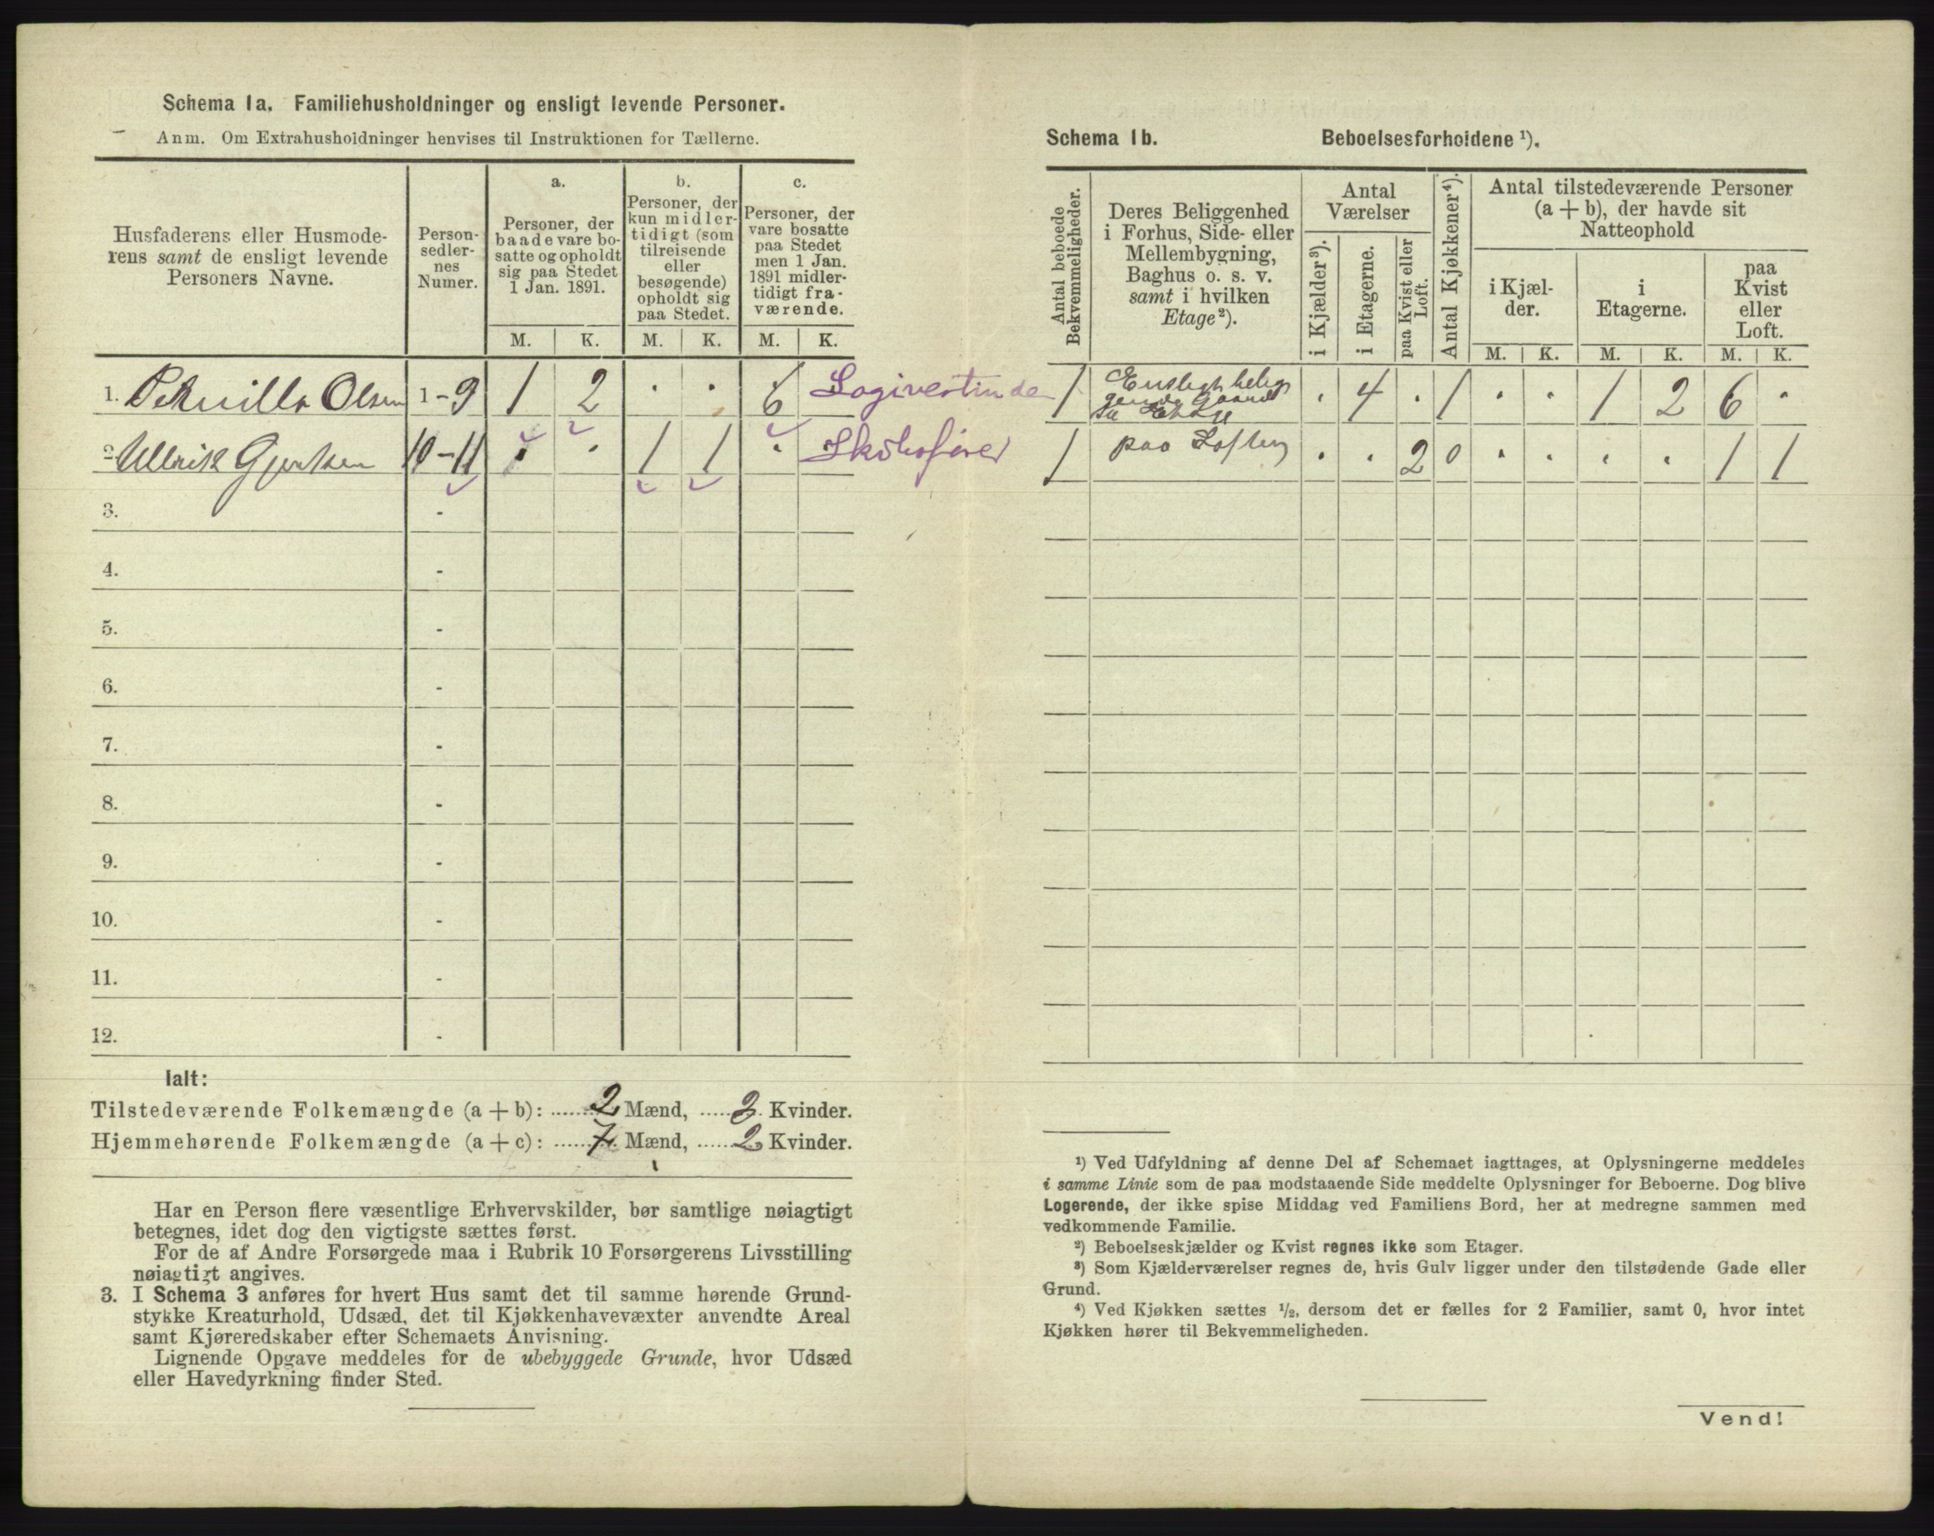 Schema 1a. Familiehusholdninger og ensligt levende Personer.
Anm. Om Extrahusholdninger henvises til Instruktionen for Tællerne.
Husfaderens eller Husmode-
rens samt de ensligt levende
Personers Navne.
Person-
sedler-
nes
Numer.
a.
Personer, der
baade vare bo-
satte og opholdt
sig paa Stedet
1 Jan. 1891.
b.
Personer, der
kun midler-
tidigt (som
tilreisende
eller
besøgende)
opholdt sig
paa Stedet.
c.
Personer, der
vare bosatte
paa Stedet
men 1 Jan.
1891 midler-
tidigt fra-
værende.
M. K. M. K. M. K.
1. Pernille Olsen 1-9 1 2 . . 6 Logivertinde
2 Ulrik Gjertsen 10-11 . . 1 1 . Skibsfører
3. -
4. -
5. -
6. -
7. -
8. -
9. -
10. -
11. -
12. -
Ialt:
Tilstedeværende Folkemængde (a + b): 2 Mænd, 3 Kvinder.
Hjemmehørende Folkemængde (a + c): 7 Mænd, 2 Kvinder.
Har en Person flere væsentlige Erhvervskilder, bør samtlige nøiagtigt
betegnes, idet dog den vigtigste sættes først.
For de af Andre Forsørgede maa i Rubrik 10 Forsørgerens Livsstilling
nøiagtigt angives.
3. I Schema 3 anføres for hvert Hus samt det til samme hørende Grund-
stykke Kreaturhold, Udsæd, det til Kjøkkenhavevæxter anvendte Areal
samt Kjøreredskaber efter Schemaets Anvisning.
Lignende Opgave meddeles for de ubebyggede Grunde, hvor Udsæd
eller Havedyrkning finder Sted.
Schema 1b. Beboelsesforholdene ¹).
Antal beboede
Bekvemmeligheder.
Deres Beliggenhed
i Forhus, Side- eller
Mellembygning,
Baghus o. s. v.
samt i hvilken
Etage²).
Antal
Værelser
i Kjælder³).
i Etagerne.
paa Kvist eller
Loft.
Antal Kjøkkener⁴).
Antal tilstedeværende Personer
(a + b), der havde sit
Natteophold
i Kjæl-
der.
i
Etagerne.
paa
Kvist
eller
Loft.
M. K. M. K. M. K.
1 Ensligt belig
gende Gaard
Etage . 4 . 1 . . 1 2 6 .
1 paa Loften . . 2 0 . . . . 1 1
¹) Ved Udfyldning af denne Del af Schemaet iagttages, at Oplysningerne meddeles
i samme Linie som de paa modstaaende Side meddelte Oplysninger for Beboerne. Dog blive
Logerende, der ikke spise Middag ved Familiens Bord, her at medregne sammen med
vedkommende Familie.
²) Beboelseskjælder og Kvist regnes ikke som Etager.
³) Som Kjælderværelser regnes de, hvis Gulv ligger under den tilstødende Gade eller
Grund.
⁴) Ved Kjøkken sættes ½, dersom det er fælles for 2 Familier, samt 0, hvor intet
Kjøkken hører til Bekvemmeligheden.
Vend!